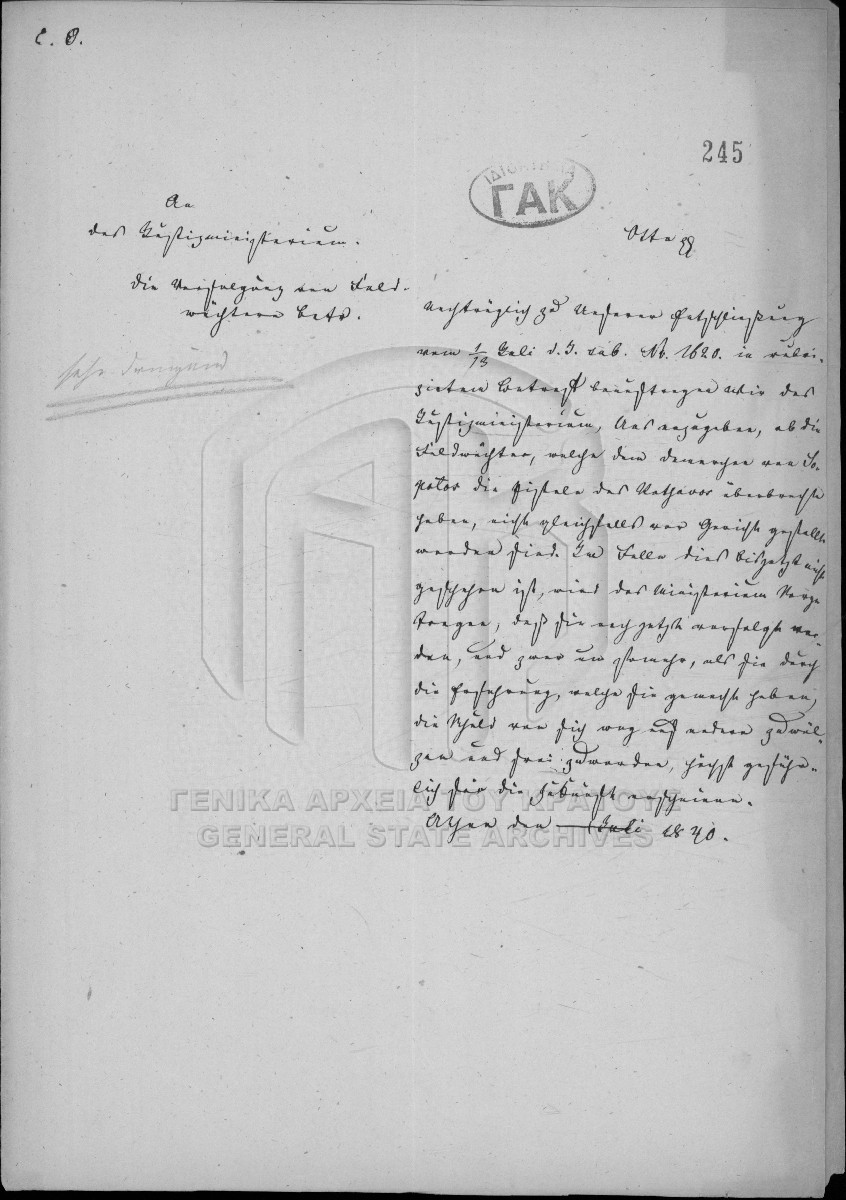 C. O.
245
ΓΑΚ
An
das Justizministerium.
Die Verfolgung von Feld-
wächtern betr.
sehr dringend
Otto
Nachträglich zu Unserer Entschließung
vom 1/13 Juli d. J. sub. No. 1620. in rubri-
zirtem Betreff beauftragen Wir das
Justizministerium, Uns anzugeben, ob die
Feldwächter, welche dem Demarchen von So-
potos die Pistole des überbracht
haben, nicht gleichfalls vor Gericht gestellt
worden sind. Im Falle dies bis jetzt nicht
geschehen ist, wird das Ministerium Sorge
tragen, daß sie noch jetzt verfolgt wer-
den, und zwar um so mehr, als sie durch
die Erfahrung, welche sie gemacht haben,
die Schuld von sich weg auf andere zu wäl-
zen und frei zu werden, höchst gefähr-
lich für die Zukunft erscheinen.
Athen den Juli 1840.
ΓΕΝΙΚΑ ΑΡΧΕΙΑ ΤΟΥ ΚΡΑΤΟΥΣ
GENERAL STATE ARCHIVES